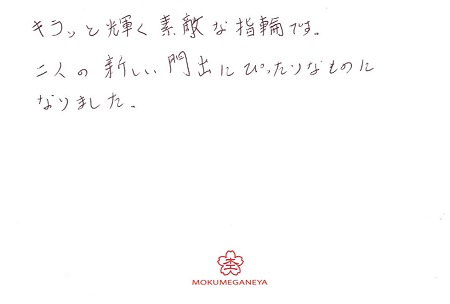 キラッと輝く素敵な指輪です。
二人の新しい門出にぴったりなものに
なりました。
MOKUMEGANEYA